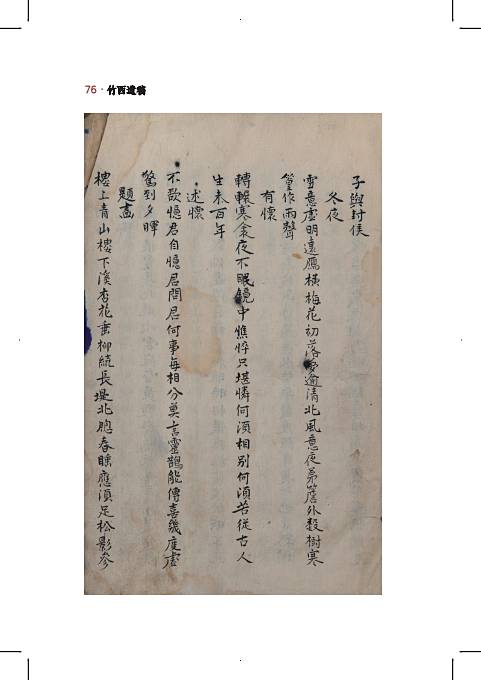 76 · 竹西遺稿
子與封侯
冬夜
雪意虛明遠雁橫梅花初落愛逾清北風意夜茅簷外數樹寒
篁作雨聲
有懷
轉輾寒衾夜不眠鏡中憔悴只堪憐何須相別何須苦從古人
生未百年
述懷
不欲憶君自憶君問君何事每相分莫言靈鵲能傳喜幾度虛
驚到夕曛
題畵
樓上青山樓下溪杏花垂柳繞長堤北牕春睡應須足松影參